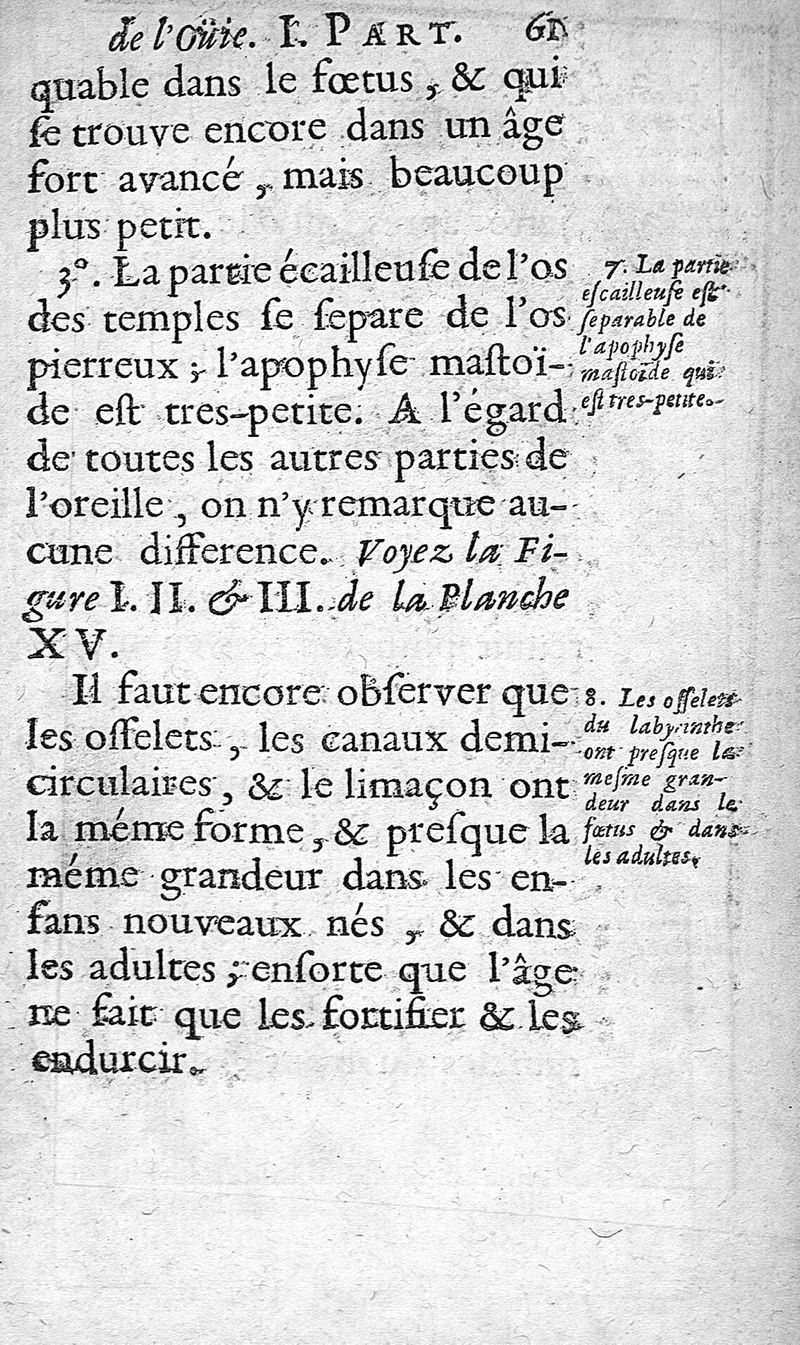 de l'Oüie. I. PART. 61
quable dans le fœtus, & qui
ſe trouve encore dans un âge
fort avancé, mais beaucoup
plus petit.
3°. La partie écailleuſe de l'os
des temples ſe ſepare de l'os
pierreux; l'apophyſe maſtoï-
de eſt tres-petite. A l'égard
de toutes les autres parties de
l'oreille, on n'y remarque au-
cune difference. Voyez la Fi-
gure I. II. & III. de la Planche
XV.
7. La partie
eſcailleuſe eſt
ſeparable de
l'apophyſe
maſtoïde qui
eſt tres-petite.
Il faut encore obſerver que
les oſſelets, les canaux demi-
circulaires, & le limaçon ont
la méme forme, & preſque la
méme grandeur dans les en-
fans nouveaux nés, & dans
les adultes; enſorte que l'âge
ne fait que les fortifier & les
endurcir.
8. Les oſſelets
du labyrinthe
ont preſque la
meſme gran-
deur dans le
fœtus & dans
les adultes.